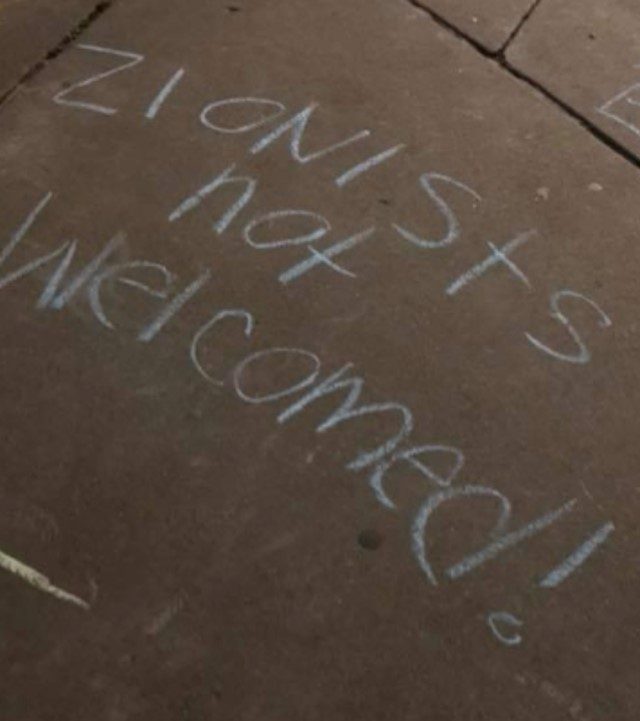 ZIONISTS
not
Welcomed!